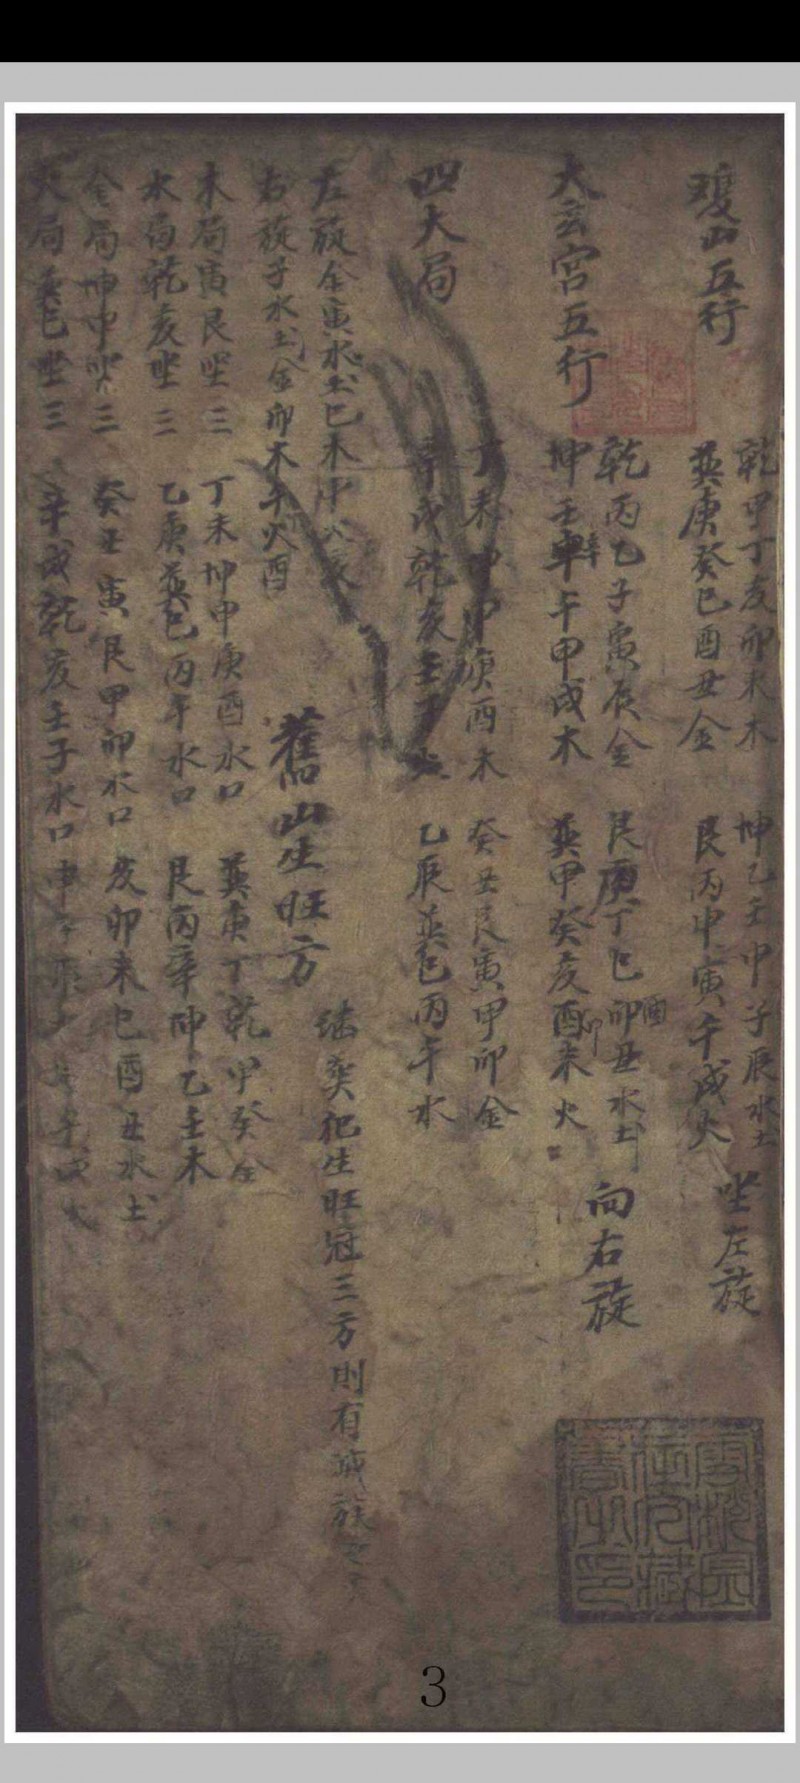 雙山五行
乾甲丁亥卯未木
巽庚癸巳酉丑金
坤乙壬申子辰水土
艮丙辛寅午戌火
坐左旋
大玄宮五行
乾丙乙子寅辰金
坤壬辛午申戌木
艮庚丁巳卯丑水土
酉
巽甲癸亥酉未火
卯
向右旋
四大局
丁未坤申庚酉木
辛戌乾亥壬子火
癸丑艮寅甲卯金
乙辰巽巳丙午水
左旋金寅水土巳木申火亥
右旋子水土金卯木午火酉
舊山生旺方
葬犯生旺冠三方則有滅族之
木局寅艮坐三
丁未坤申庚酉水口
巽庚丁乾甲癸金
水局乾亥坐三
乙庚巽巳丙午水口
艮丙辛坤乙壬木
金局坤申坐三
癸丑寅艮甲卯水口
亥卯未巳酉丑水土
火局巽巳坐三
辛戌乾亥壬子水口
申子辰
3